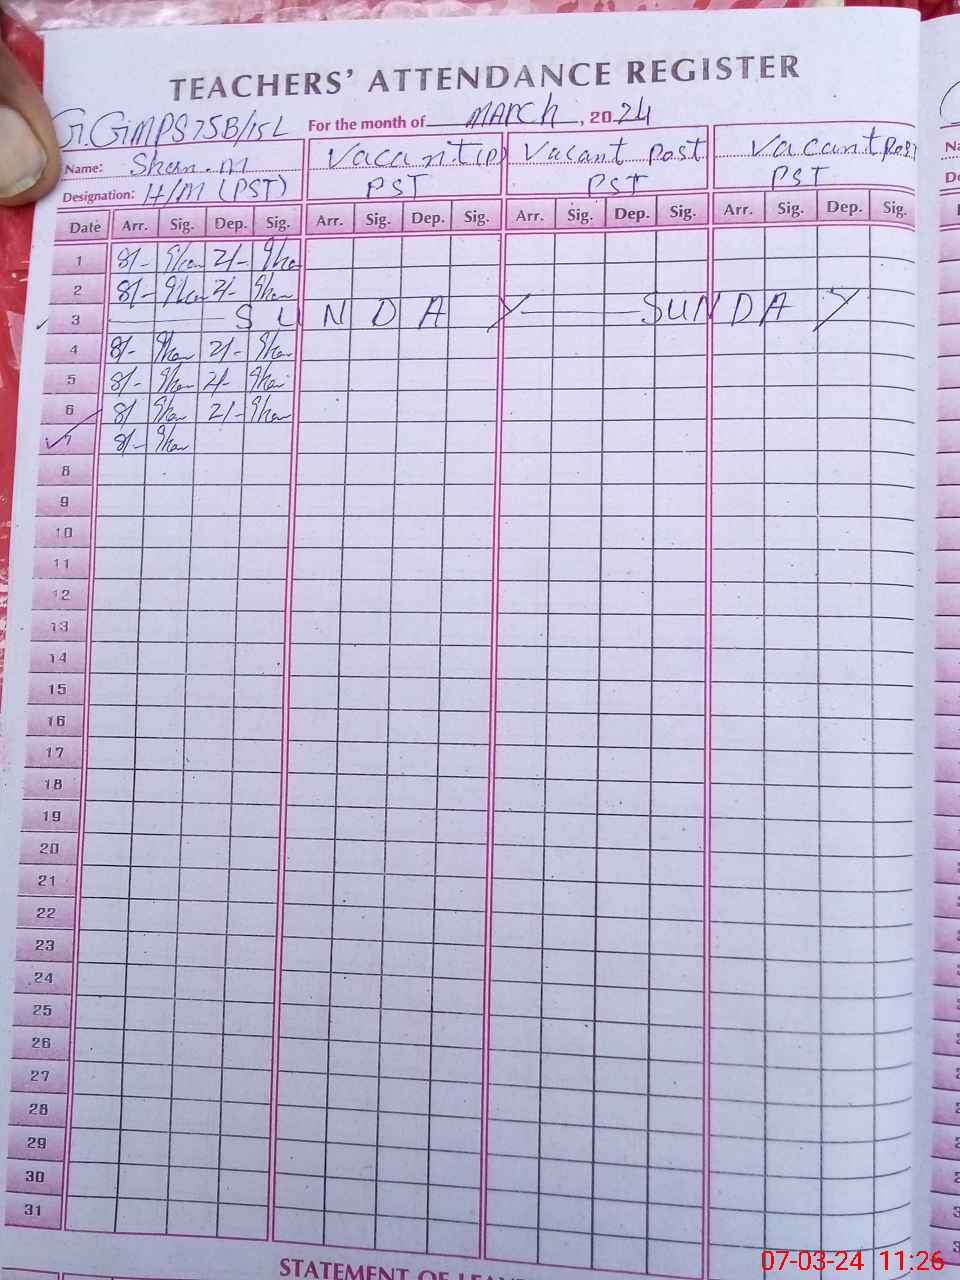 TEACHERS' ATTENDANCE REGISTER
G.GMPS 75B/15L For the month of MARCH, 2024
Name: Shan.m Vacant Vacant Post Vacant Post
Designation: H/M (PST) PST PST PST
Date Arr. Sig. Dep. Sig. Arr. Sig. Dep. Sig. Arr. Sig. Dep. Sig. Arr. Sig. Dep. Sig.
1 8/- Shan 2/- Shan
2 8/- Shan 2/- Shan
3 SUNDAY SUNDAY
4 8/- Shan 2/- Shan
5 8/- Shan 2/- Shan
6 8/ Shan 2/- Shan
7 8/- Shan
8
9
10
11
12
13
14
15
16
17
18
19
20
21
22
23
24
25
26
27
28
29
30
31
STATEMENT OF
07-03-24 11:26